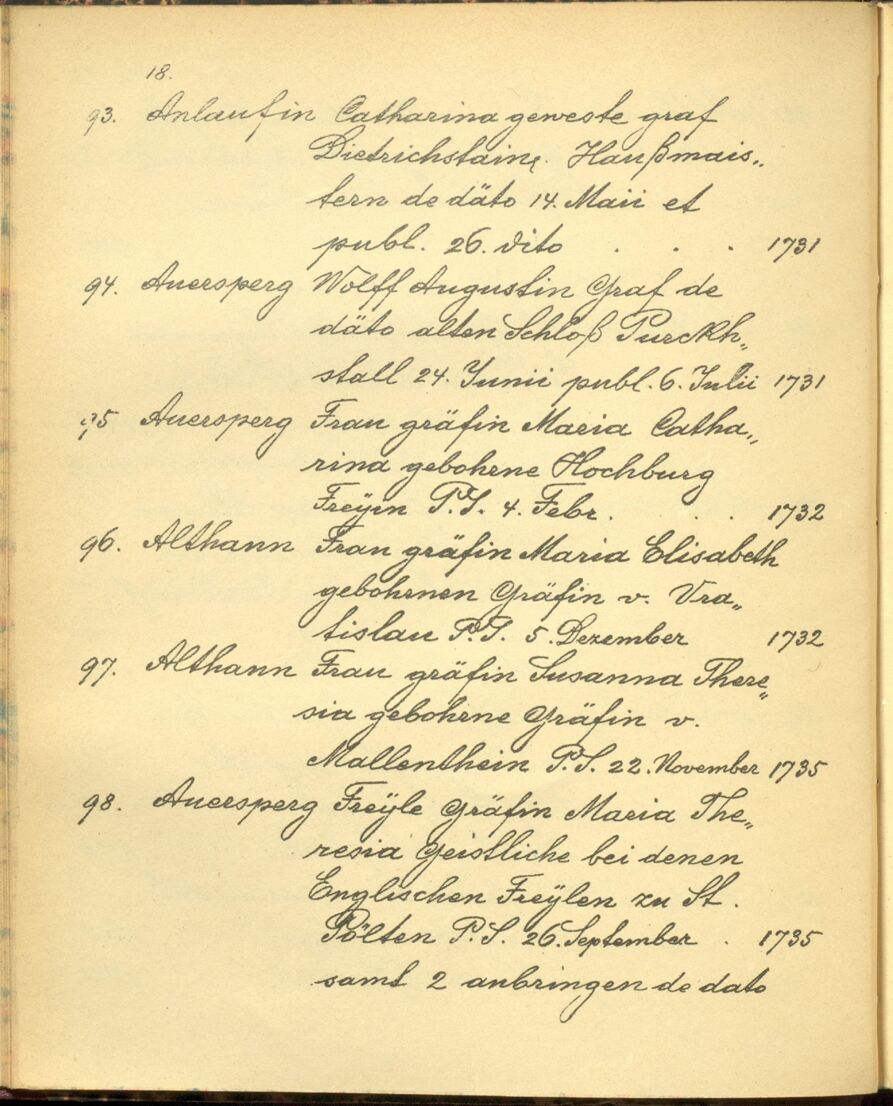 18.
93. Anlaufin Catharina geweste graf
Dietrichstaing. Haußmais„
tern de däto 14. Maii et
publ. 26. dito . . . 1731
94. Auersperg Wolff Augustin Graf de
däto alten Schloß Purckh„
stall 24. Junii publ. 6. Julii 1731
95 Auersperg Frau gräfin Maria Catha„
rina gebohrne Hochburg
Freyin P.S. 4. Febr. . . . 1732
96. Althann Frau gräfin Maria Elisabeth
gebohrnen Gräfin v. Vra„
tislau P.S. 5. Dezember 1732
97. Althann Frau gräfin Susanna There„
sia gebohrne Gräfin v.
Mallenthein P.S. 22. November 1735
98. Auersperg Freÿle Gräfin Maria The„
resia Geistliche bei denen
Englischen Freÿlen zu St.
Pölten P.S. 26. September . 1735
samt 2 anbringen de dato